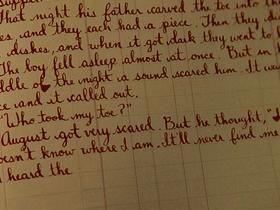 That night his father carved the toe into th
es, and they each had a piece. Then they
dishes, and when it got dark they went to
The boy fell asleep almost at once. But in
ddle of the night a sound scared him. It
ce and it called out.
"Who took my toe?"
August got very scared. But he thought,
oesn't know where I am. It'll never find me
I heard the